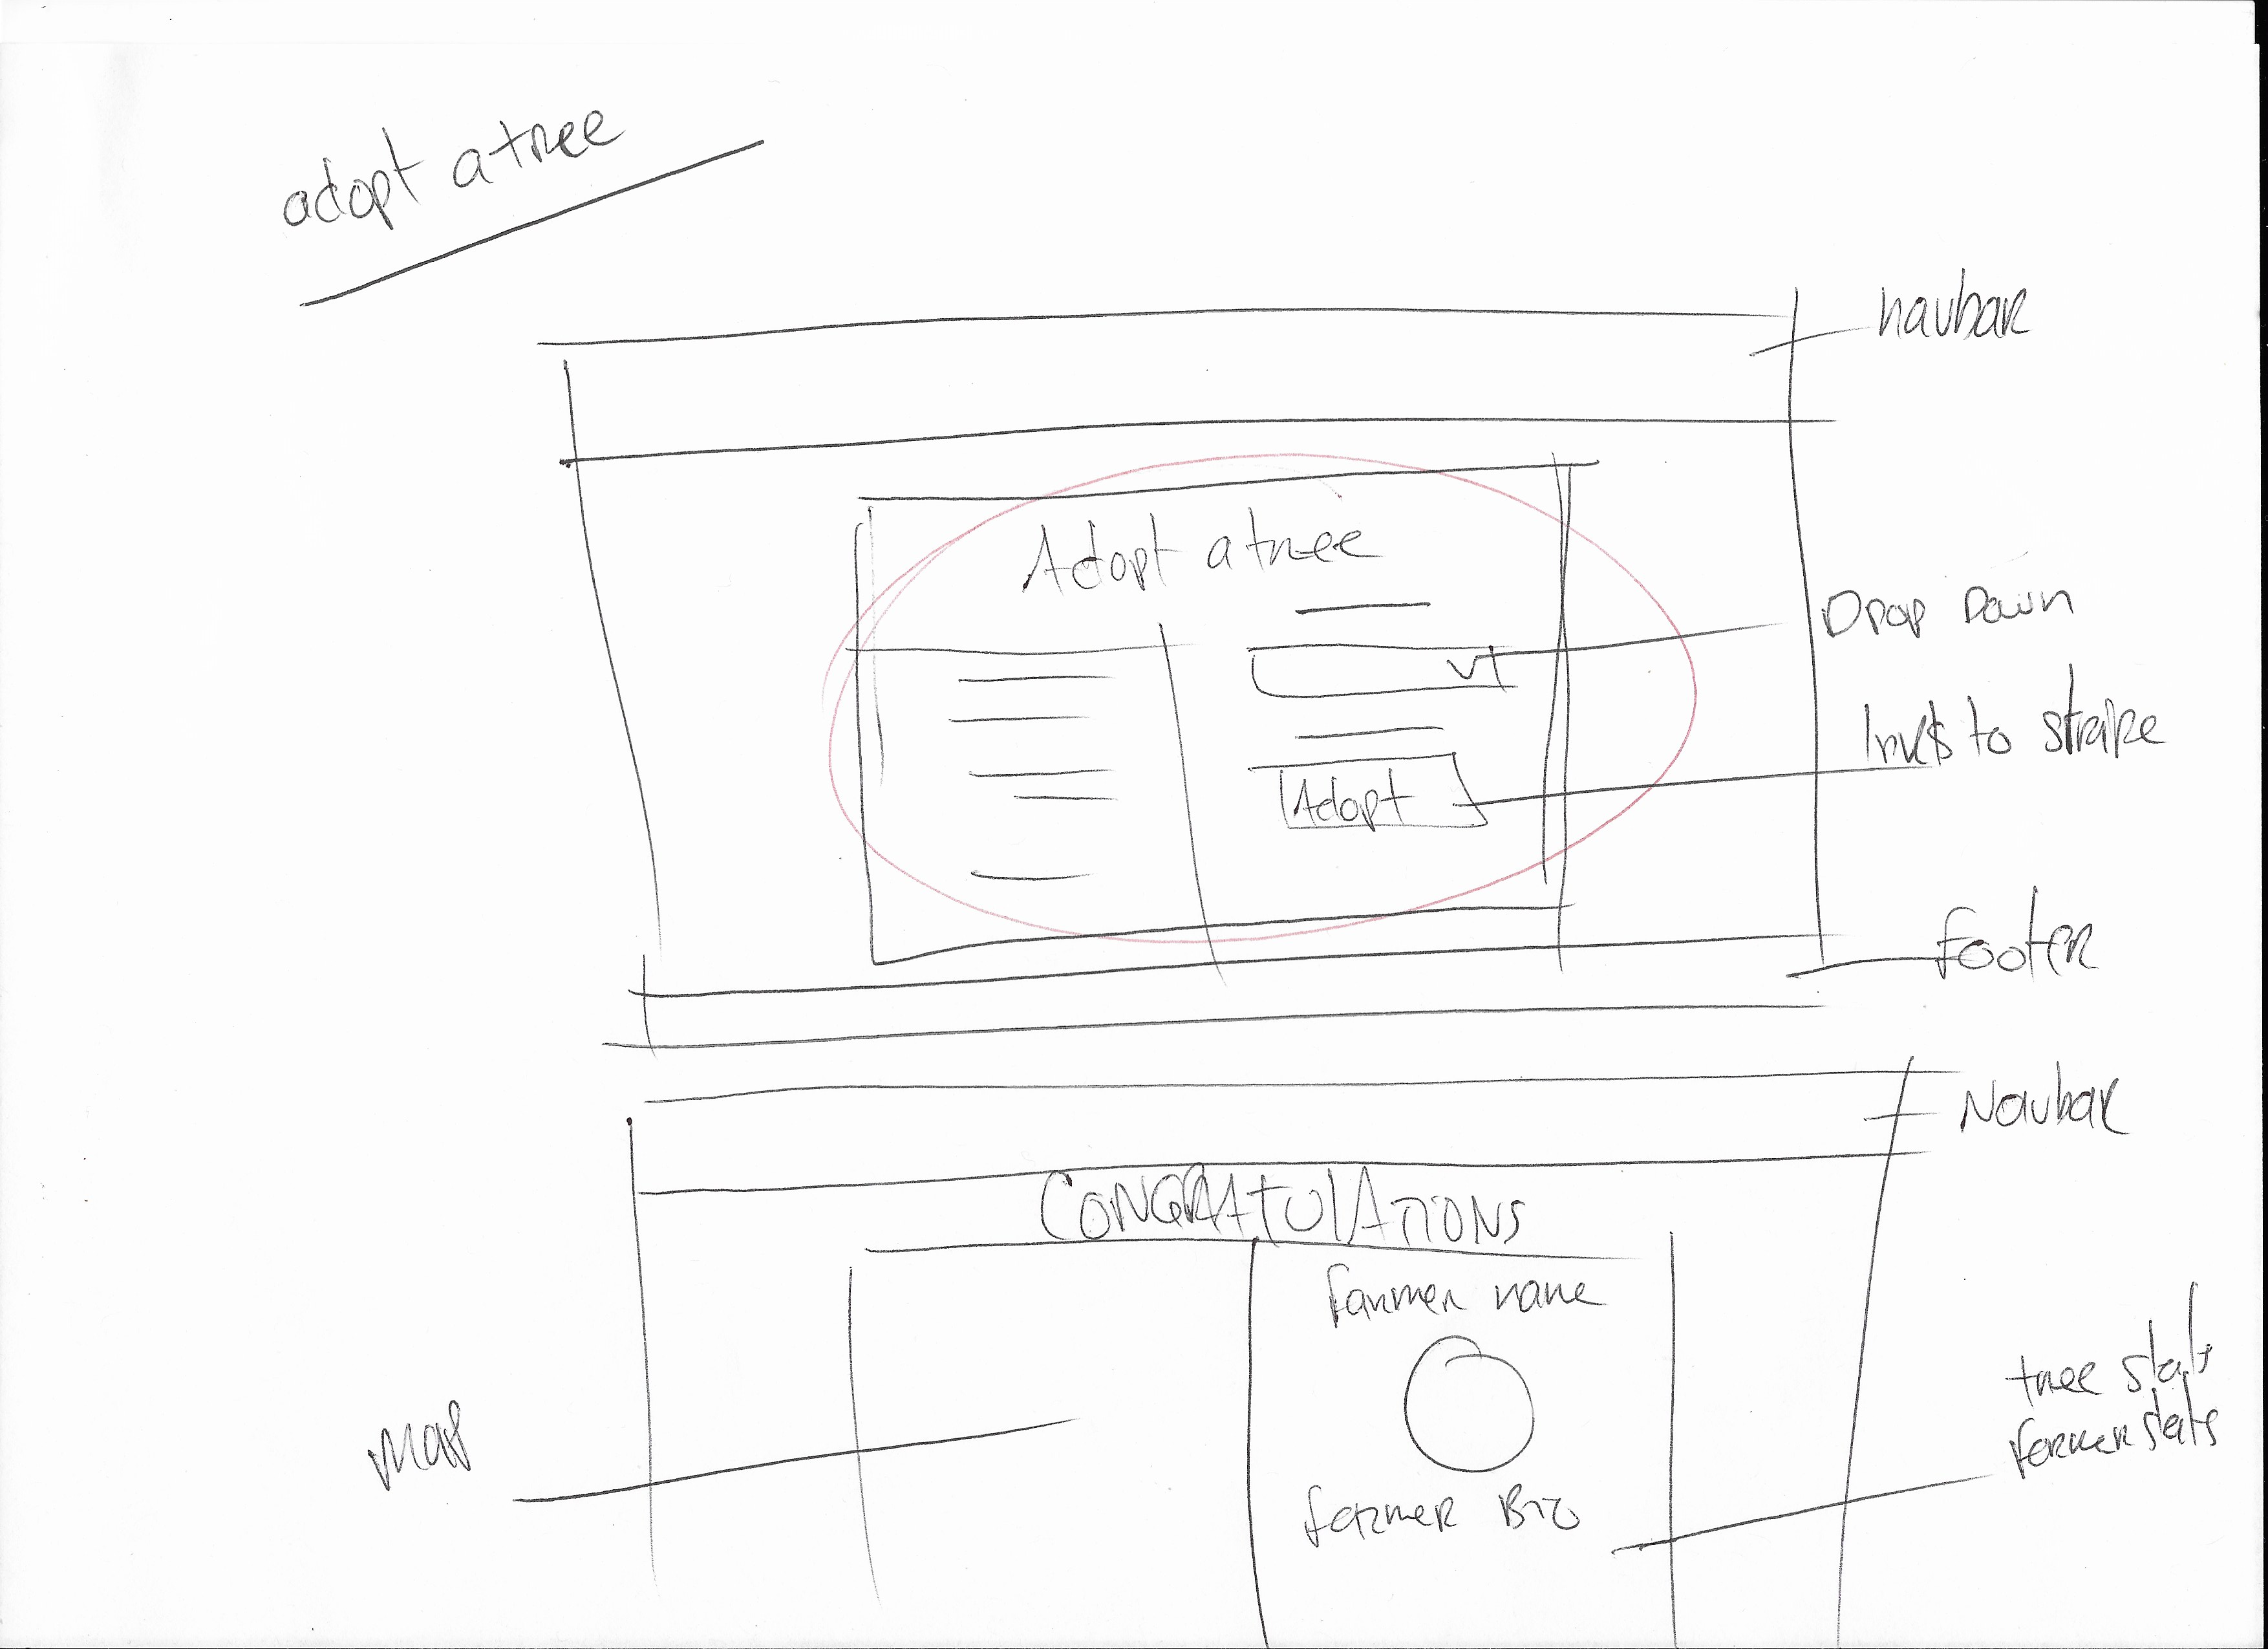 adopt a tree
navbar
Adopt a tree
Drop Down
links to stripe
Adopt
footer
Navbar
CONGRATULATIONS
farmer name
map
tree stats
farmer stats
farmer Bio